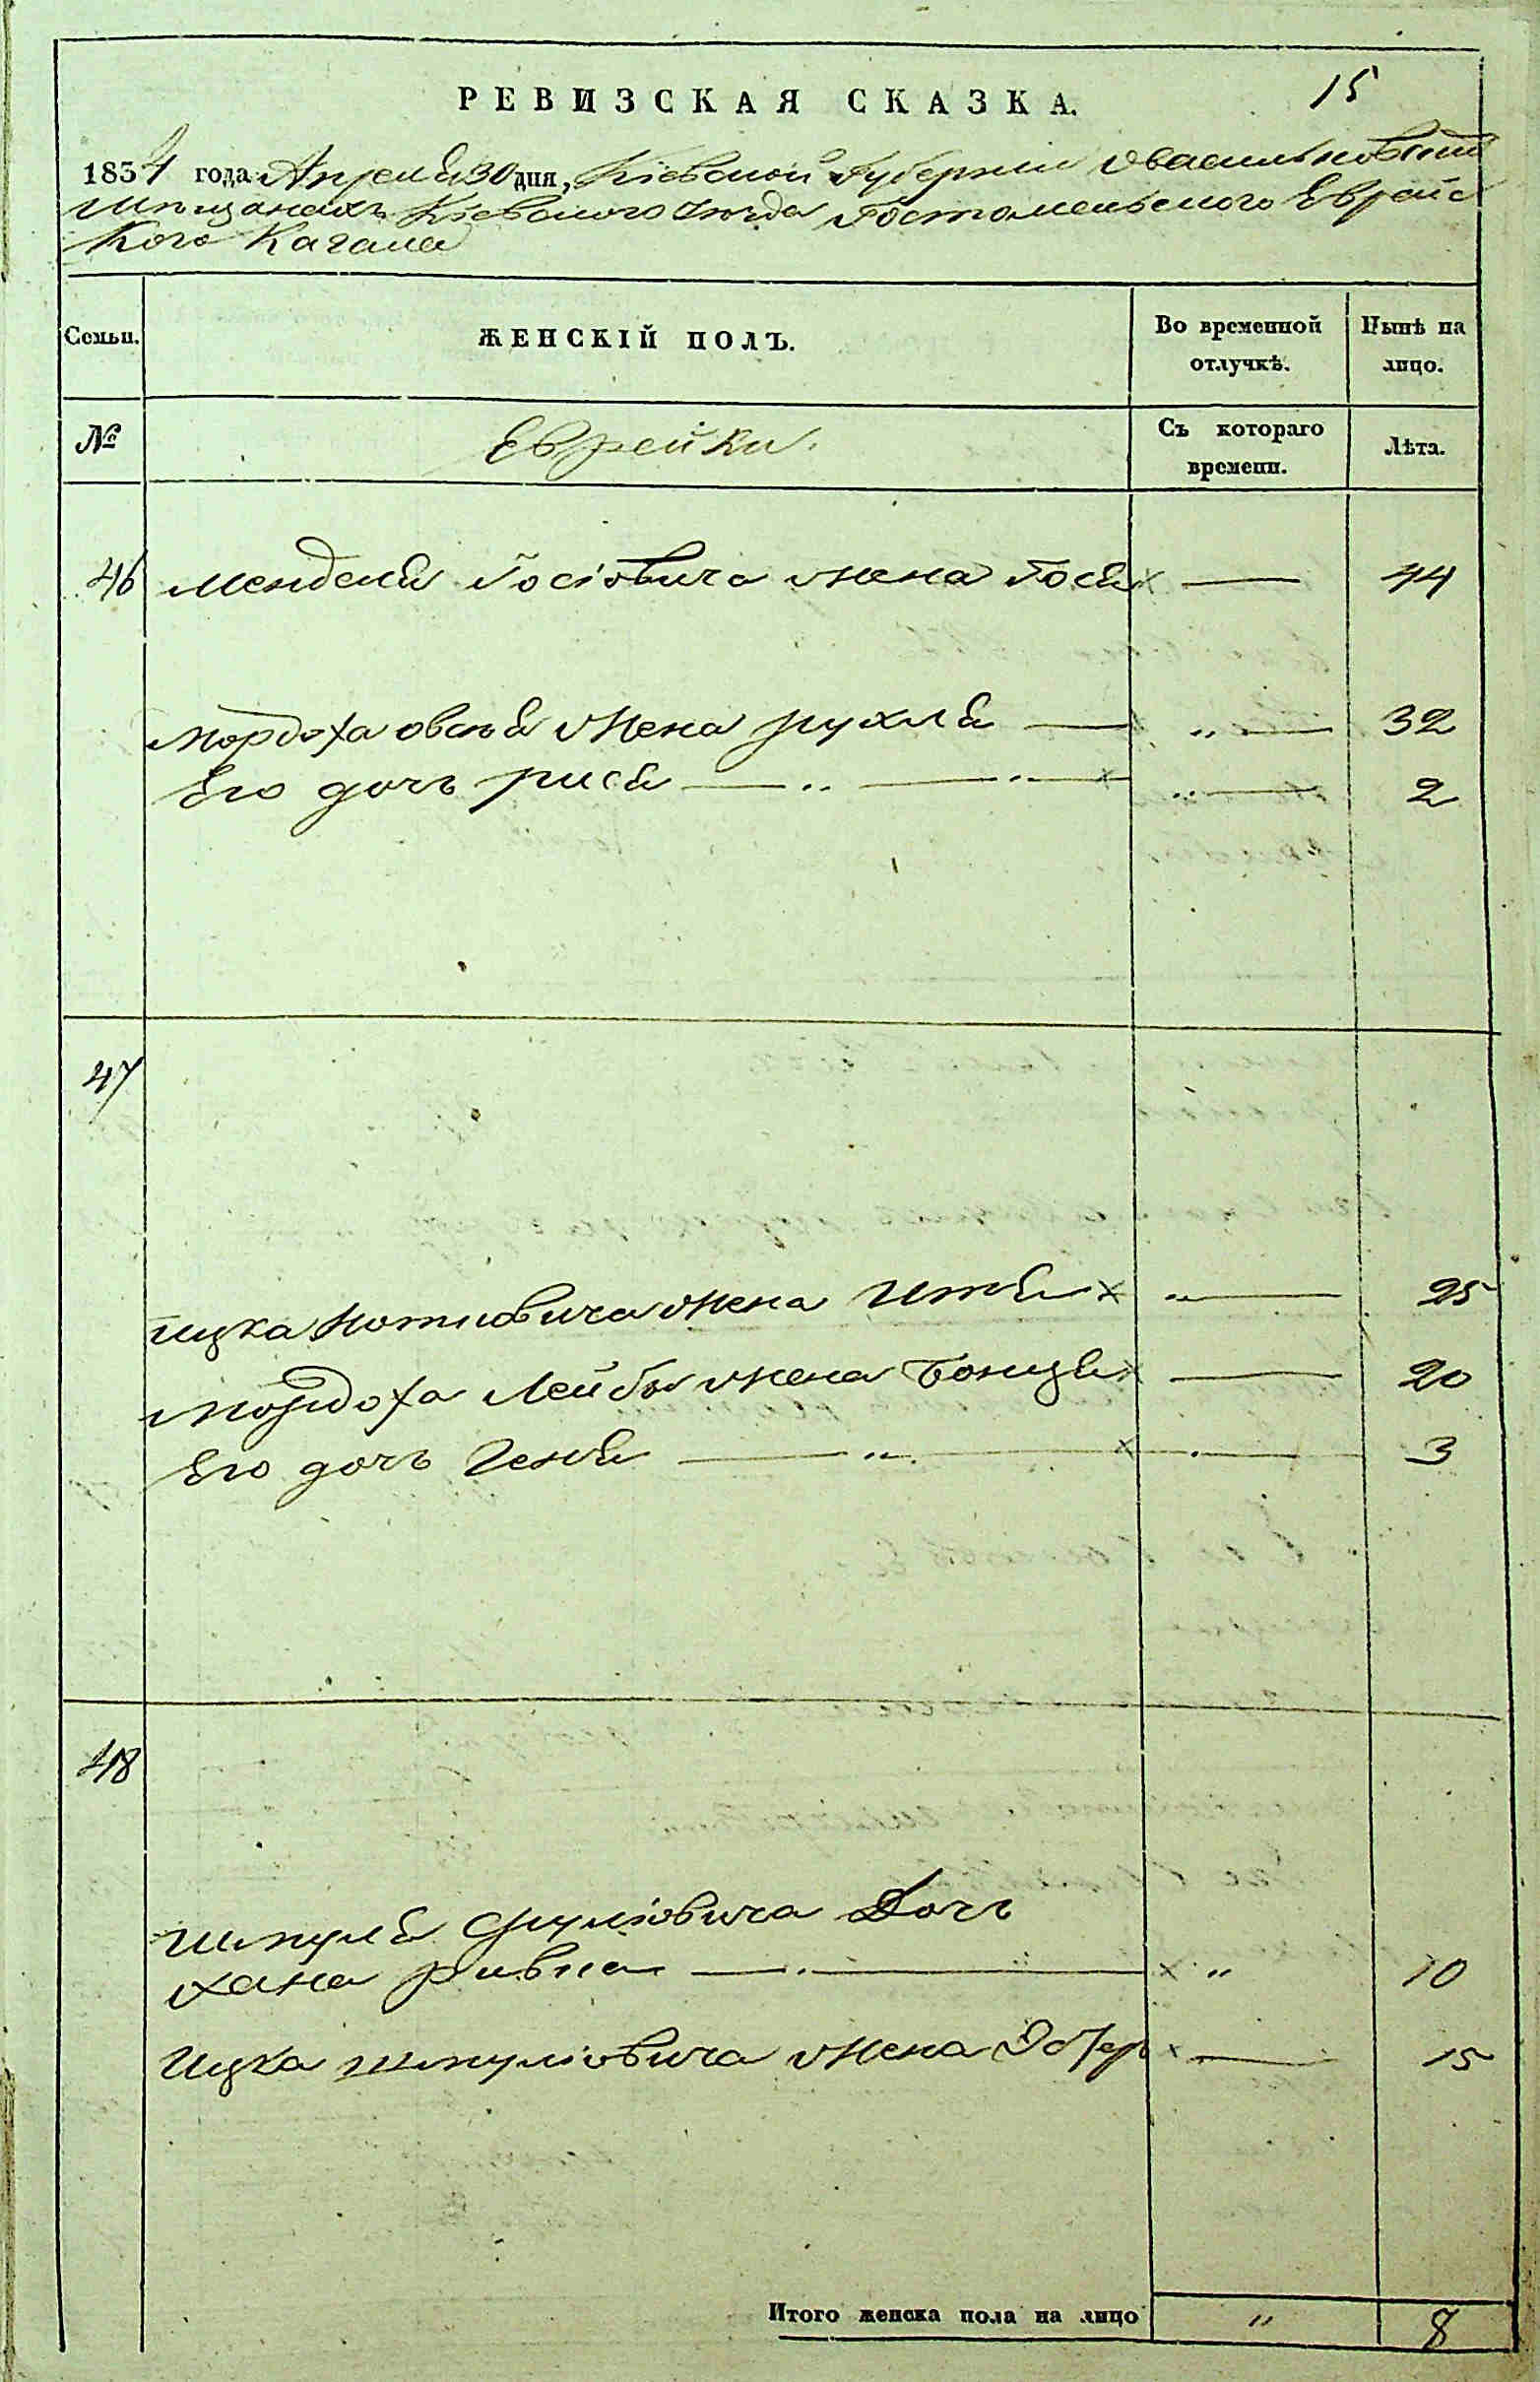 РЕВИЗСКАЯ СКАЗКА.
15
1834 года Апреля 30 дня, Кіевской Губерніи Васильковскій
мѣщанахъ Кіевского уѣзда Гостомельского Еврейс
кого Кагала
Семьи. ЖЕНСКІЙ ПОЛЪ. Во временной отлучкѣ. Нынѣ на лицо.
№ Еврейки. Съ котораго времени. Лѣта.
46 Менделя Иосіовича жена Гося x — 44
Мордоха овсѣя жена рухля — „ — 32
Его дочъ рися — „ — „ — x „ — 2
47
ицка Мотиовича жена Итя x „ — 25
Мордоха Лейбы жена Бонця x — 20
Его дочъ Геня — „ — x „ — 3
48
Шмуля Сруліовича Дочъ
хана ривка — „ — x „ 10
Ицка шмуліовича жена Эстер x — 15
Итого женска пола на лицо „ 8